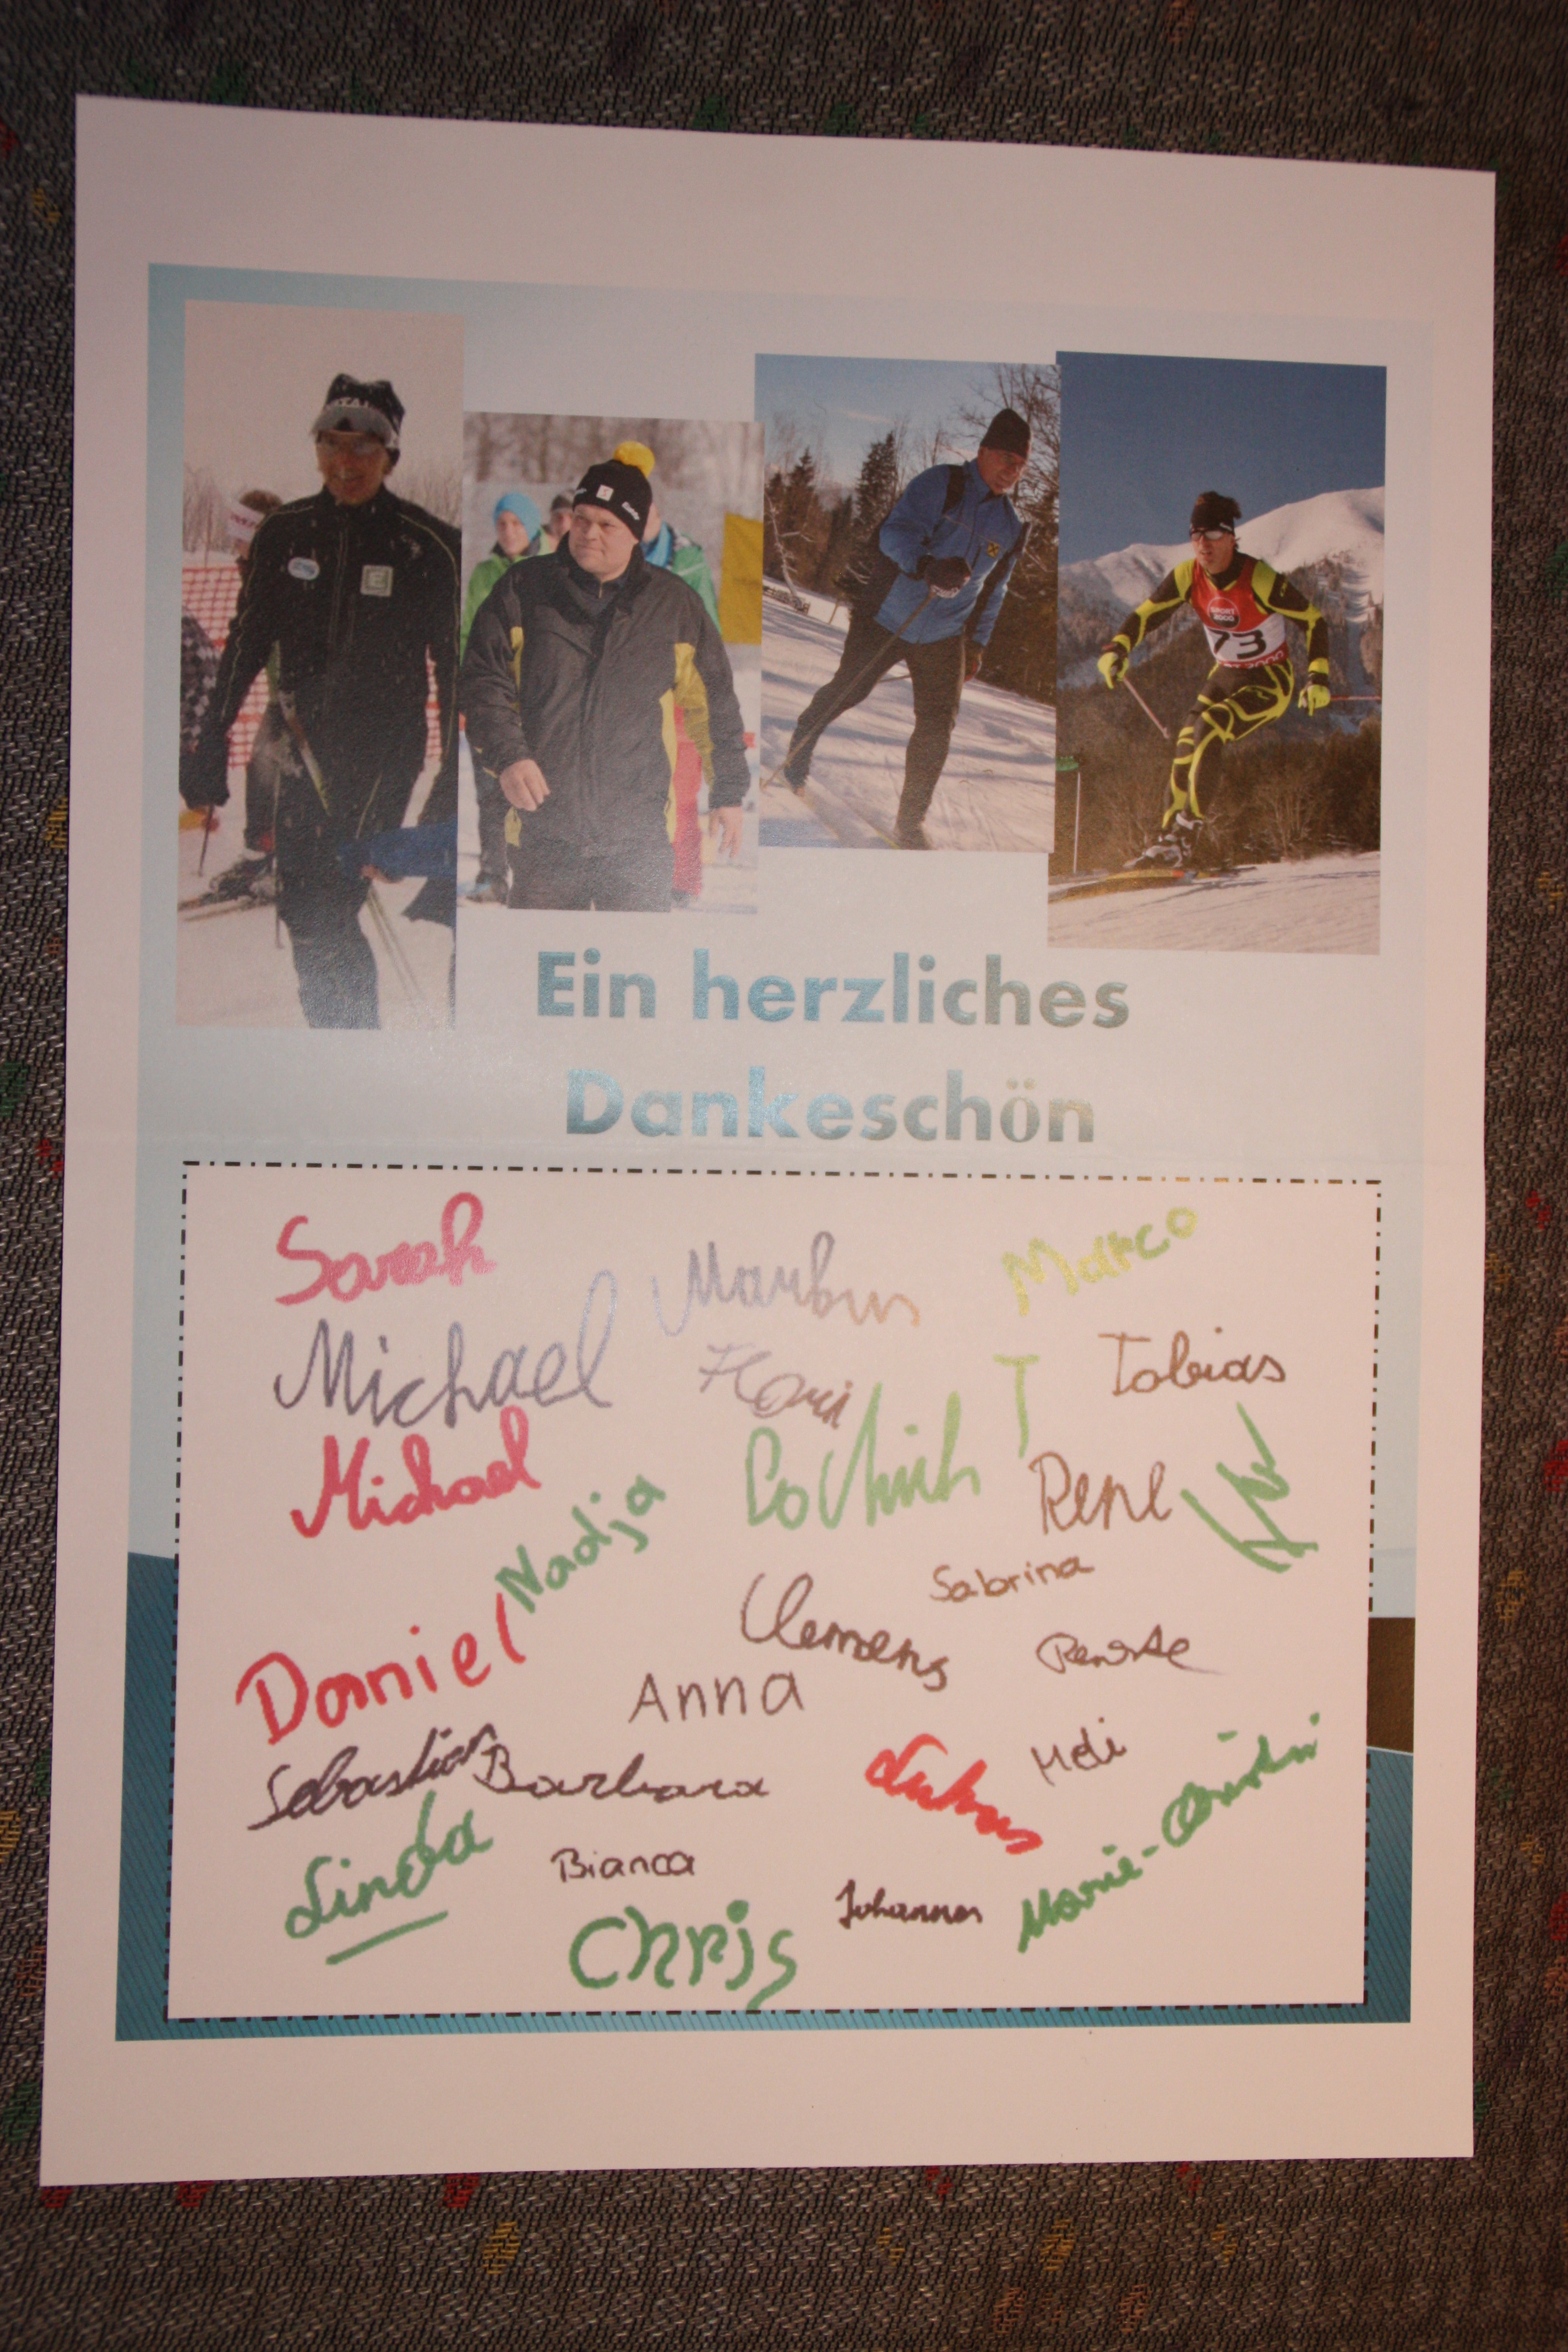 SPORT
2000
73
Ein herzliches
Dankeschön
Sarah
Markus
Marco
Michael
Flori
T
Tobias
Michael
Nadja
Rene
Clemens
Sabrina
Daniel
Anna
Renate
Sebastian
Barbara
Lukas
Heli
Marie-Christin
Linda
Bianca
Johannes
Chris